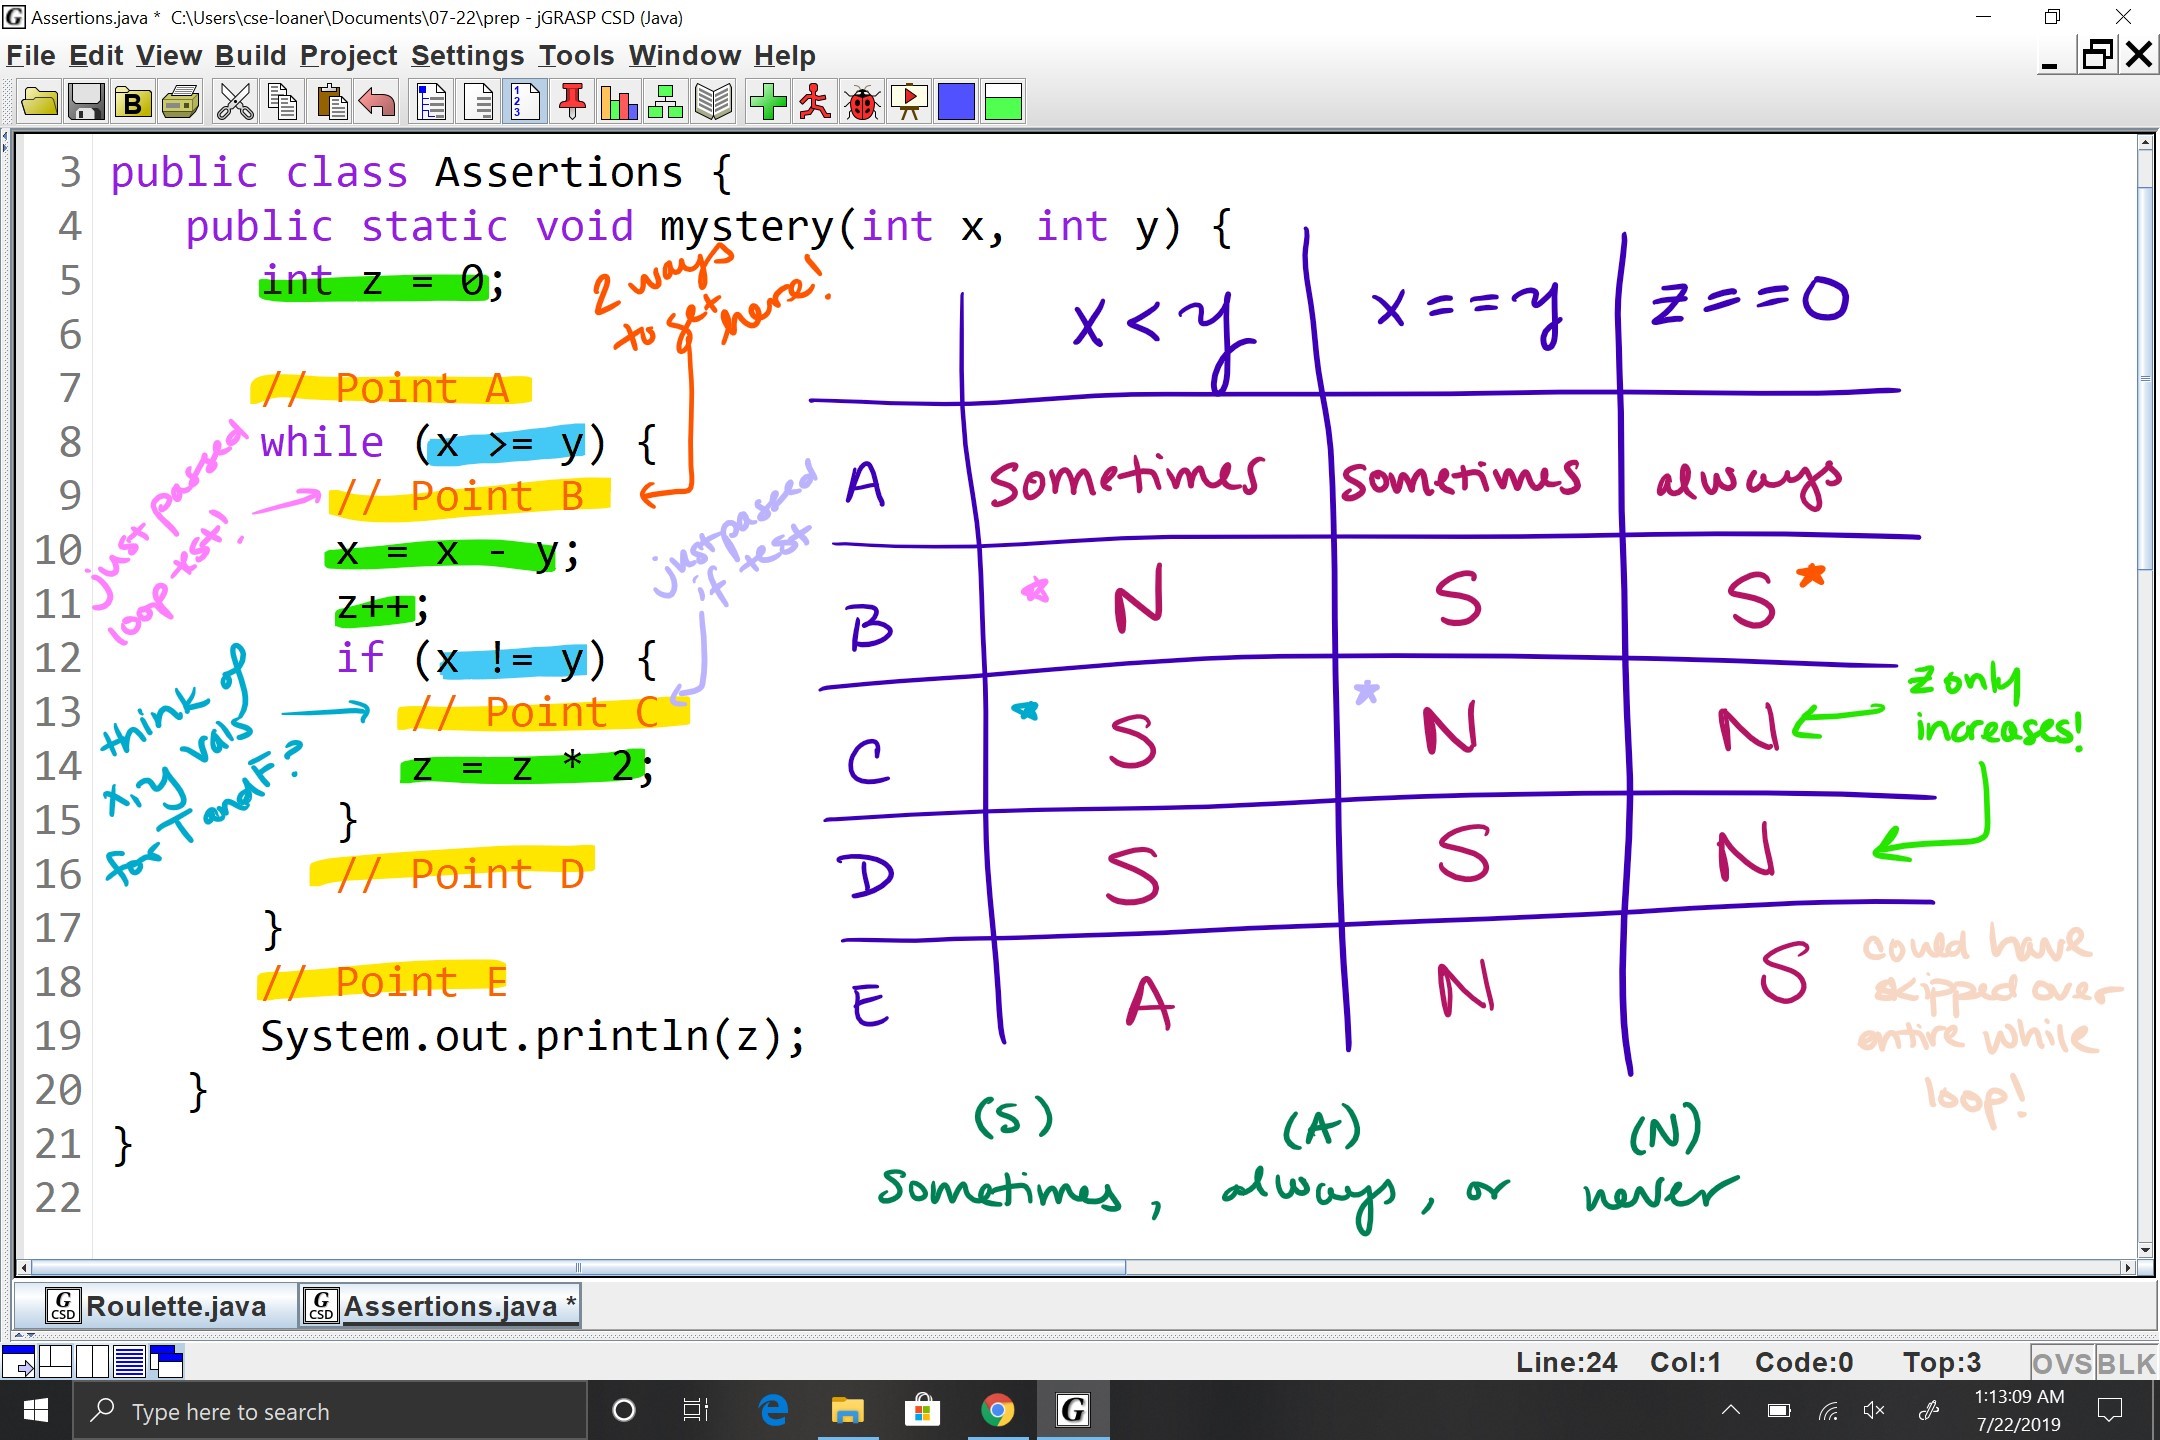 Assertions.java *  C:\Users\cse-loaner\Documents\07-22\prep - jGRASP CSD (Java)
File Edit View Build Project Settings Tools Window Help
3 public class Assertions {
4 public static void mystery(int x, int y) {
5 int z = 0;
6
7 // Point A
8 while (x >= y) {
9 // Point B
10 x = x - y;
11 z++;
12 if (x != y) {
13 // Point C
14 z = z * 2;
15 }
16 // Point D
17 }
18 // Point E
19 System.out.println(z);
20 }
21 }
22
2 ways
to get here!
just passed
loop test!
just passed
if test
think of
x,y vals
for T and F?
x < y x == y z == 0
A sometimes sometimes always
B * N S S *
C * S * N N
D S S N
E A N S
z only
increases!
could have
skipped over
entire while
loop!
(S) (A) (N)
sometimes, always, or never
Roulette.java Assertions.java *
Line:24 Col:1 Code:0 Top:3 OVS BLK
Type here to search
1:13:09 AM
7/22/2019